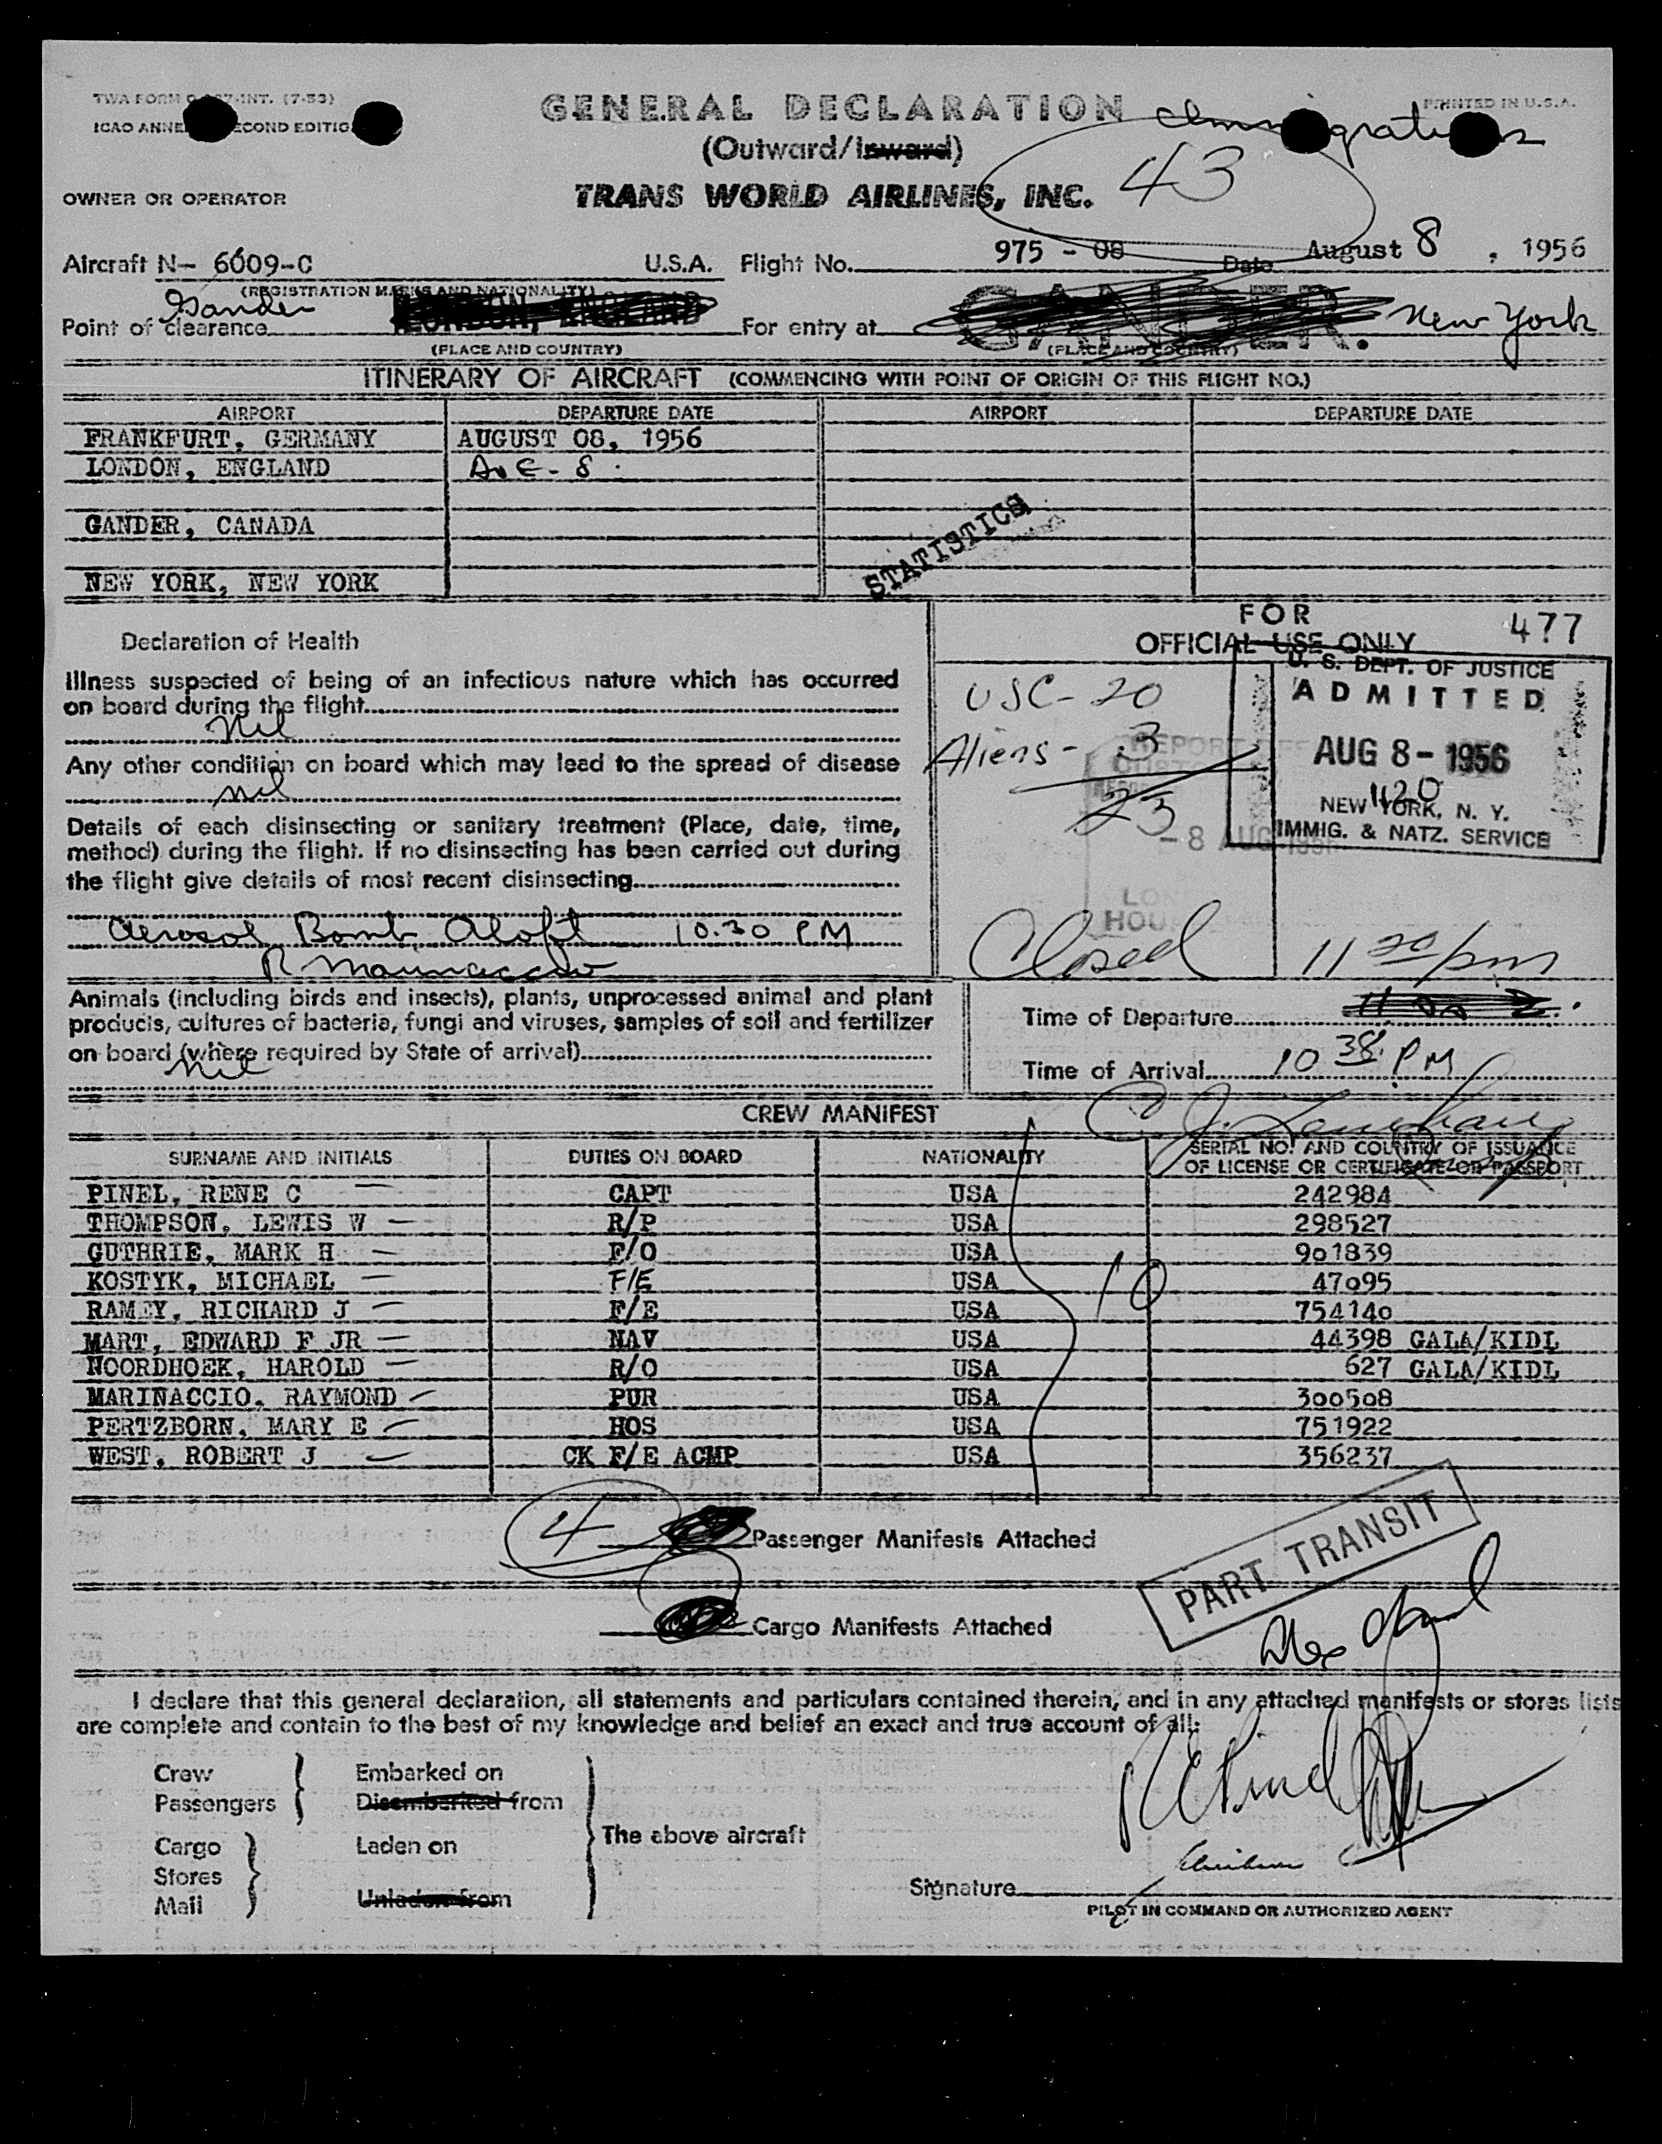 TWA FORM INT. (7-53)
ICAO ANNE ECOND EDITIO
GENERAL DECLARATION
PRINTED IN U.S.A.
Immigration
(Outward/Inward)
43
OWNER OR OPERATOR
TRANS WORLD AIRLINES, INC.
Aircraft N- 6009-C U.S.A. Flight No. 975 - 08 Date August 8, 1956
(REGISTRATION MARKS AND NATIONALITY)
Gander
Point of clearance LONDON, ENGLAND For entry at GANDER. New York
(PLACE AND COUNTRY) (PLACE AND COUNTRY)
ITINERARY OF AIRCRAFT (COMMENCING WITH POINT OF ORIGIN OF THIS FLIGHT NO.)
AIRPORT DEPARTURE DATE AIRPORT DEPARTURE DATE
FRANKFURT, GERMANY AUGUST 08, 1956
LONDON, ENGLAND
GANDER, CANADA
STATISTICS
NEW YORK, NEW YORK
FOR
OFFICIAL USE ONLY
477
Declaration of Health
Illness suspected of being of an infectious nature which has occurred
on board during the flight
Nil
Any other condition on board which may lead to the spread of disease
nil
Details of each disinsecting or sanitary treatment (Place, date, time,
method) during the flight. If no disinsecting has been carried out during
the flight give details of most recent disinsecting
Aerosol Bomb Aloft 10.30 PM
R Marinaccio
USC- 20
Aliens - 3
23
- 8 AUG 195
U. S. DEPT. OF JUSTICE
ADMITTED
AUG 8 - 1956
1120
NEW YORK, N. Y.
IMMIG. & NATZ. SERVICE
Closed 11 20/pm
Animals (including birds and insects), plants, unprocessed animal and plant
products, cultures of bacteria, fungi and viruses, samples of soil and fertilizer
on board (where required by State of arrival)
Nil
Time of Departure
Time of Arrival 10 38 PM
CREW MANIFEST
SURNAME AND INITIALS DUTIES ON BOARD NATIONALITY SERIAL NO. AND COUNTRY OF ISSUANCE
OF LICENSE OR CERTIFICATE OR PASSPORT
PINEL, RENE C CAPT USA 242984
THOMPSON, LEWIS W R/P USA 298527
GUTHRIE, MARK H F/O USA 901839
KOSTYK, MICHAEL F/E USA 47095
10
RAMEY, RICHARD J F/E USA 754140
MART, EDWARD F JR NAV USA 44398 GALA/KIDL
NOORDHOEK, HAROLD R/O USA 627 GALA/KIDL
MARINACCIO, RAYMOND PUR USA 300508
PERTZBORN, MARY E HOS USA 751922
WEST, ROBERT J CK F/E ACMP USA 356237
4 Passenger Manifests Attached
PART TRANSIT
Cargo Manifests Attached
I declare that this general declaration, all statements and particulars contained therein, and in any attached manifests or stores lists
are complete and contain to the best of my knowledge and belief an exact and true account of all:
Crew Embarked on
Passengers Disembarked from
The above aircraft
Cargo Laden on
Stores
Mail Unladen from
R C Pinel
Signature
PILOT IN COMMAND OR AUTHORIZED AGENT